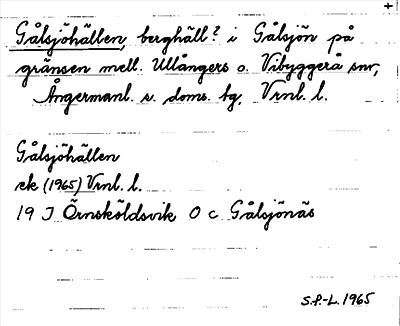 Gålsjöhällen, berghäll? i Gålsjön på
gränsen mell. Ullångers o. Vibyggerå snr,
Ångermanl. s. doms. tg, Vrnl. l.
Gålsjöhällen
ek (1965) Vrnl. l.
19 J Örnsköldsvik 0 c Gålsjönäs
S.P.-L. 1965